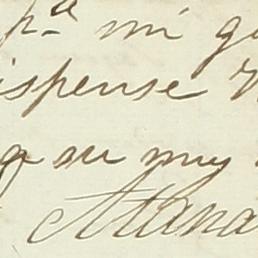 pª mi
ispense
su muy
Atana